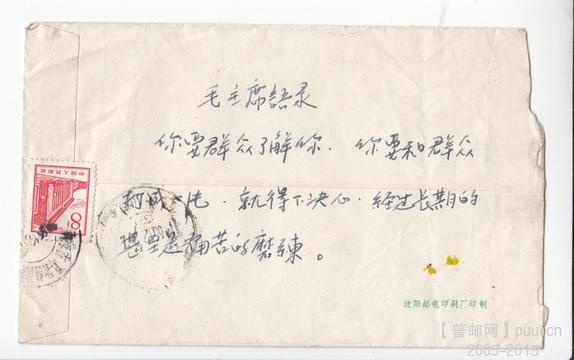 毛主席語录
你要群众了解你．你要和群众
打成一片．就得下决心．经过长期的
甚至是痛苦的磨練。
中国人民邮政
8
沈阳邮电印刷厂印制
【普邮网】puuu.cn
2005-2015